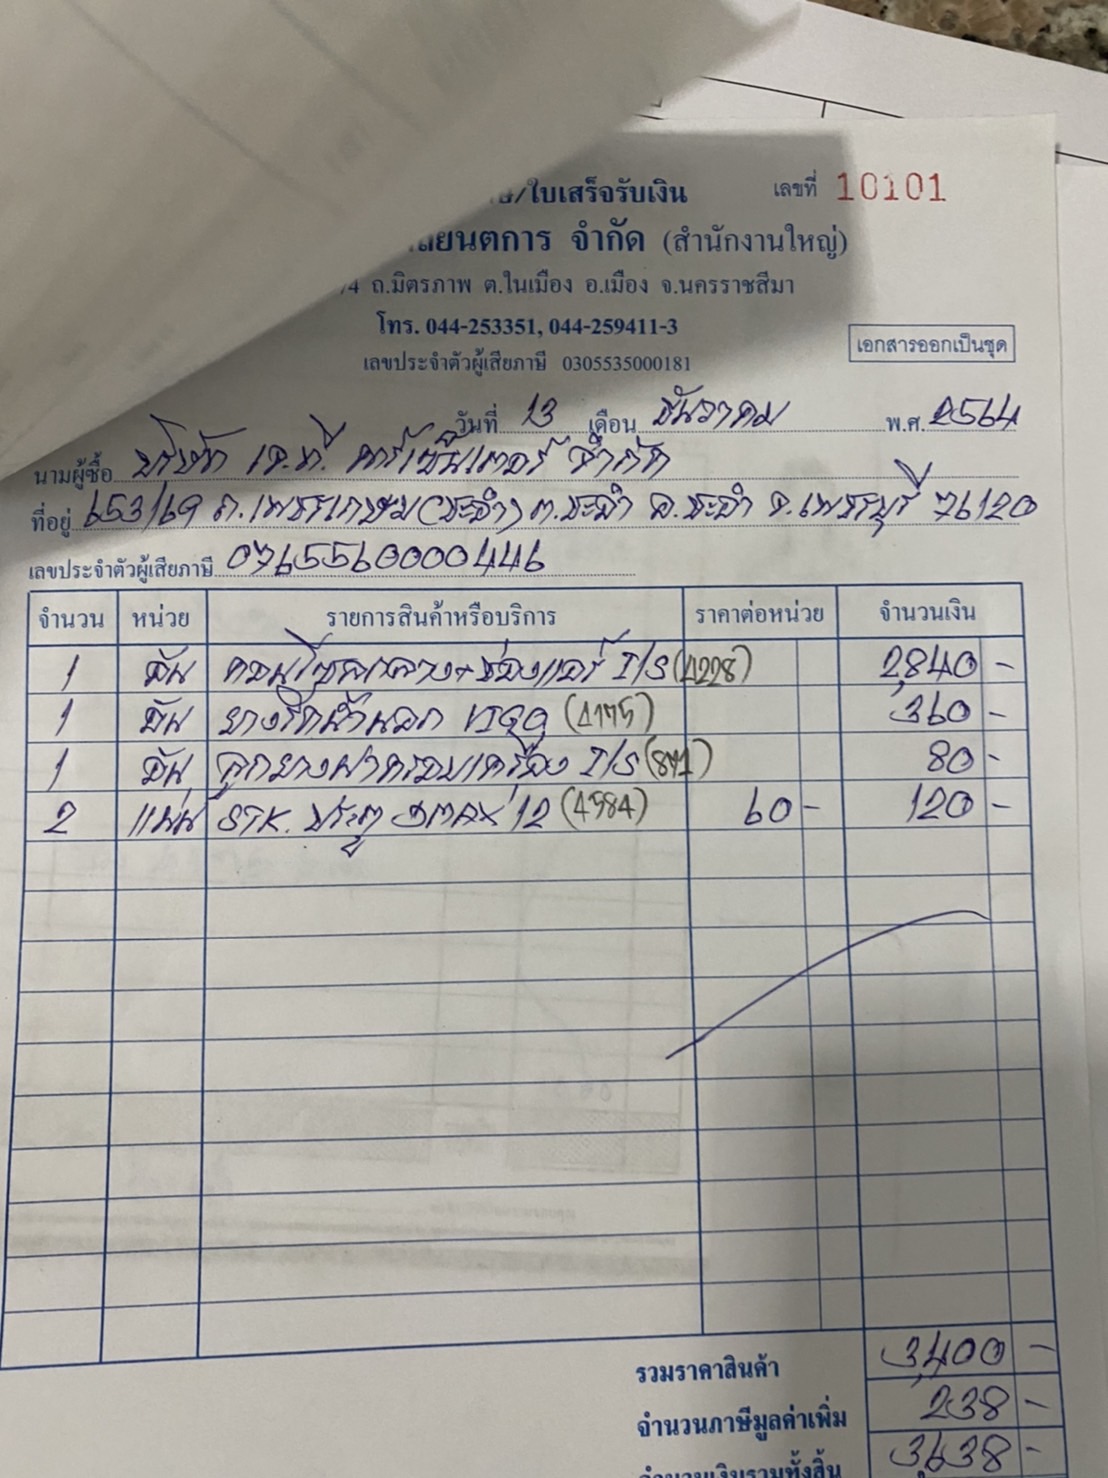 /ใบเสร็จรับเงิน เลขที่ 10101
ยนตการ จำกัด (สำนักงานใหญ่)
ถ.มิตรภาพ ต.ในเมือง อ.เมือง จ.นครราชสีมา
โทร. 044-253351, 044-259411-3
เลขประจำตัวผู้เสียภาษี 0305535000181
เอกสารออกเป็นชุด
วันที่ 13 เดือน ธันวาคม พ.ศ. 2564
นามผู้ซื้อ บริษัท เจ.ที. คาร์เซ็นเตอร์ จำกัด
ที่อยู่ 653/69 ถ.เพชรเกษม(ชะอำ) ต.ชะอำ อ.ชะอำ จ.เพชรบุรี 76120
เลขประจำตัวผู้เสียภาษี 0765560000446
จำนวน หน่วย รายการสินค้าหรือบริการ ราคาต่อหน่วย จำนวนเงิน
1 อัน คอนโซลกลาง+ช่องแอร์ I/S (4228) 2,840 -
1 อัน ยางรีดน้ำนอก VIGO (4175) 360 -
1 อัน ลูกยางฝาครอบเครื่อง I/S (871) 80 -
2 แผ่น STK. ประตู 12 (4584) 60 - 120 -
รวมราคาสินค้า 3,400 -
จำนวนภาษีมูลค่าเพิ่ม 238 -
จำนวนเงินรวมทั้งสิ้น 3,638 -